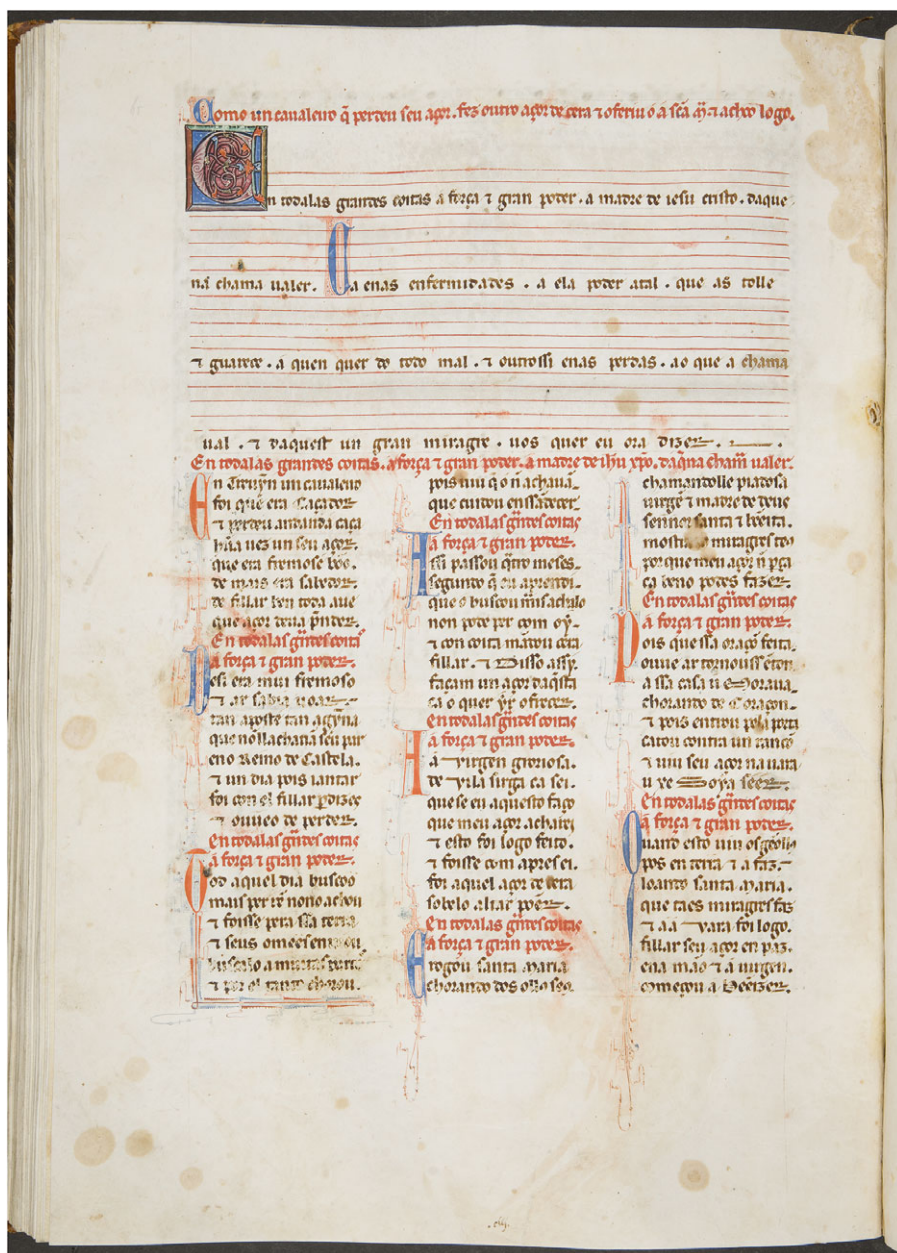 Como un cavaleiro q̃ perdeu seu açor. fez outro açor de cera ⁊ ofereu o a scã m̃. ⁊ acheo logo.
En todalas grandes coitas a força ⁊ gran poder. a madre de iesu cristo. daque
na chama ualer. Ca enas enfermidades. a ela poder atal. que as tolle
⁊ guarece. a quen quer do todo mal. ⁊ outrossi enas perdas. ao que a chama
ual. ⁊ daquest un gran miragre. uos quer eu ora dizer.
En todalas grandes coitas. a força ⁊ gran poder. a madre de ihũ xp̃o. daq̃na cham̃ ualer.
En Treuỹn un caualeiro
foi quẽ era caçador
⁊ perdeu andanda caça
hũa uez un seu açor.
que era fremoso bõo.
de mais era sabedor.
de fillar ben toda aue
que açor deuia p̃nder.
En todalas gr̃ndes coitas
a força ⁊ gran poder.
Desi era mui fremoso
⁊ ar sabia uoar
tan aposte tan agỹna
que nollachauã seu par
eno Reino de Castela.
⁊ un dia pois iantar
foi con el fillar perdizes
⁊ ouueo de perder.
En todalas gr̃ndes coitas
a força ⁊ gran poder.
Tod aquel dia buscoo
mais per rẽ nono achou
⁊ foisse pera ssa terra
⁊ seus omees enuiou.
buscalo a muitas partes
⁊ por el tanto chorou.
pois uiu q̃ o ñ achauã.
que cuidou enssãdecer
En todalas gr̃ndes coitas
a força ⁊ gran poder.
Assi passou q̃tro meses.
segundo q̃ eu aprendi.
que o buscou mas achalo
non pode per com oý.
⁊ con coita mãdou cera
fillar. ⁊ Disso assy.
façam un açor daq̃sta
ca o quer ýr ofrecer.
En todalas gr̃ndes coitas
a força ⁊ gran poder.
Aa Virgen groriosa.
de Vila sirga ca sei.
que se eu aquesto faço
que meu açor acharei
⁊ esto foi logo feito.
⁊ foisse com apres ei.
for aquel açor de cera
sobelo altar põer.
En todalas gr̃ndes coitas
a força ⁊ gran poder.
E rogou santa Maria
chorando dos ollos seus
chamandolle piadosa
uirgẽ ⁊ madre de deus
sennor santa ⁊ bẽeita.
mostra o miragres teus
por que meu açor ñ p̃ça
ca beno podes fazer.
En todalas gr̃ndes coitas
a força ⁊ gran poder.
Pois que ssa oraçõ feita.
ouue ar tornousse entõ
a ssa casa u Moraua.
chorando de Coraçon.
⁊ pois entrou pela porta
catou contra un rancõ
⁊ uiu seu açor na uara
u xe Soýa seer.
En todalas gr̃ndes coitas
a força ⁊ gran poder.
Quand esto uiu os gẽollos
pos en terra ⁊ a faz.
loando santa Maria.
que taes miragres faz
⁊ aa Vara foi logo.
fillar seu açor en paz.
ena mão ⁊ á uirgen.
começou a Bẽeizer.